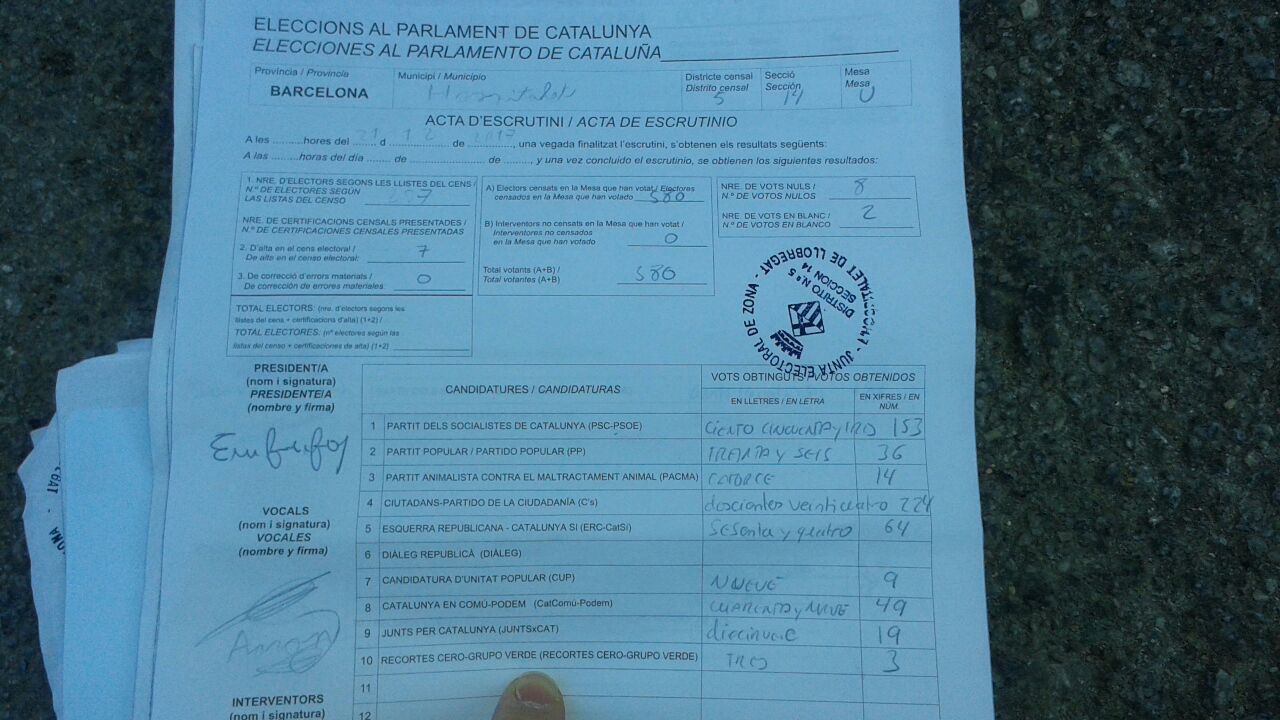 ELECCIONS AL PARLAMENT DE CATALUNYA
ELECCIONES AL PARLAMENTO DE CATALUÑA
Província / Provincia
BARCELONA
Municipi / Municipio
Hospitalet
Districte censal
Distrito censal
5
Secció
Sección
14
Mesa
Mesa
U
ACTA D'ESCRUTINI / ACTA DE ESCRUTINIO
A les ..........hores del 21 d 12 de 2017, una vegada finalitzat l'escrutini, s'obtenen els resultats següents:
A las .........horas del día ........ de ........................ de ............, y una vez concluido el escrutinio, se obtienen los siguientes resultados:
1. NRE. D'ELECTORS SEGONS LES LLISTES DEL CENS /
N.º DE ELECTORES SEGÚN
LAS LISTAS DEL CENSO
NRE. DE CERTIFICACIONS CENSALS PRESENTADES /
N.º DE CERTIFICACIONES CENSALES PRESENTADAS
2. D'alta en el cens electoral /
De alta en el censo electoral: 7
3. De correcció d'errors materials /
De corrección de errores materiales: 0
TOTAL ELECTORS: (nre. d'electors segons les
llistes del cens + certificacions d'alta) (1+2) /
TOTAL ELECTORES: (nº electores según las
listas del censo + certificaciones de alta) (1+2)
A) Electors censats en la Mesa que han votat / Electores
censados en la Mesa que han votado 580
B) Interventors no censats en la Mesa que han votat /
Interventores no censados
en la Mesa que han votado 0
Total votants (A+B) /
Total votantes (A+B) 580
NRE. DE VOTS NULS /
N.º DE VOTOS NULOS 8
NRE. DE VOTS EN BLANC /
N.º DE VOTOS EN BLANCO 2
JUNTA ELECTORAL DE ZONA -
DE LLOBREGAT
DISTRITO N.º 5
SECCION 14
PRESIDENT/A
(nom i signatura)
PRESIDENTE/A
(nombre y firma)
VOCALS
(nom i signatura)
VOCALES
(nombre y firma)
INTERVENTORS
(nom i signatura)
CANDIDATURES / CANDIDATURAS
VOTS OBTINGUTS / VOTOS OBTENIDOS
EN LLETRES / EN LETRA
EN XIFRES / EN NÚM.
1 PARTIT DELS SOCIALISTES DE CATALUNYA (PSC-PSOE) CIENTO CINCUENTA y TRES 153
2 PARTIT POPULAR / PARTIDO POPULAR (PP) TREINTA y SEIS 36
3 PARTIT ANIMALISTA CONTRA EL MALTRACTAMENT ANIMAL (PACMA) CATORCE 14
4 CIUTADANS-PARTIDO DE LA CIUDADANÍA (C's) doscientos veinticuatro 224
5 ESQUERRA REPUBLICANA - CATALUNYA SÍ (ERC-CatSí) Sesenta y quatro 64
6 DIÀLEG REPUBLICÀ (DIÀLEG)
7 CANDIDATURA D'UNITAT POPULAR (CUP) NUEVE 9
8 CATALUNYA EN COMÚ-PODEM (CatComú-Podem) CUARENTA y NUEVE 49
9 JUNTS PER CATALUNYA (JUNTSxCAT) diecinueve 19
10 RECORTES CERO-GRUPO VERDE (RECORTES CERO-GRUPO VERDE) TRES 3
11
12